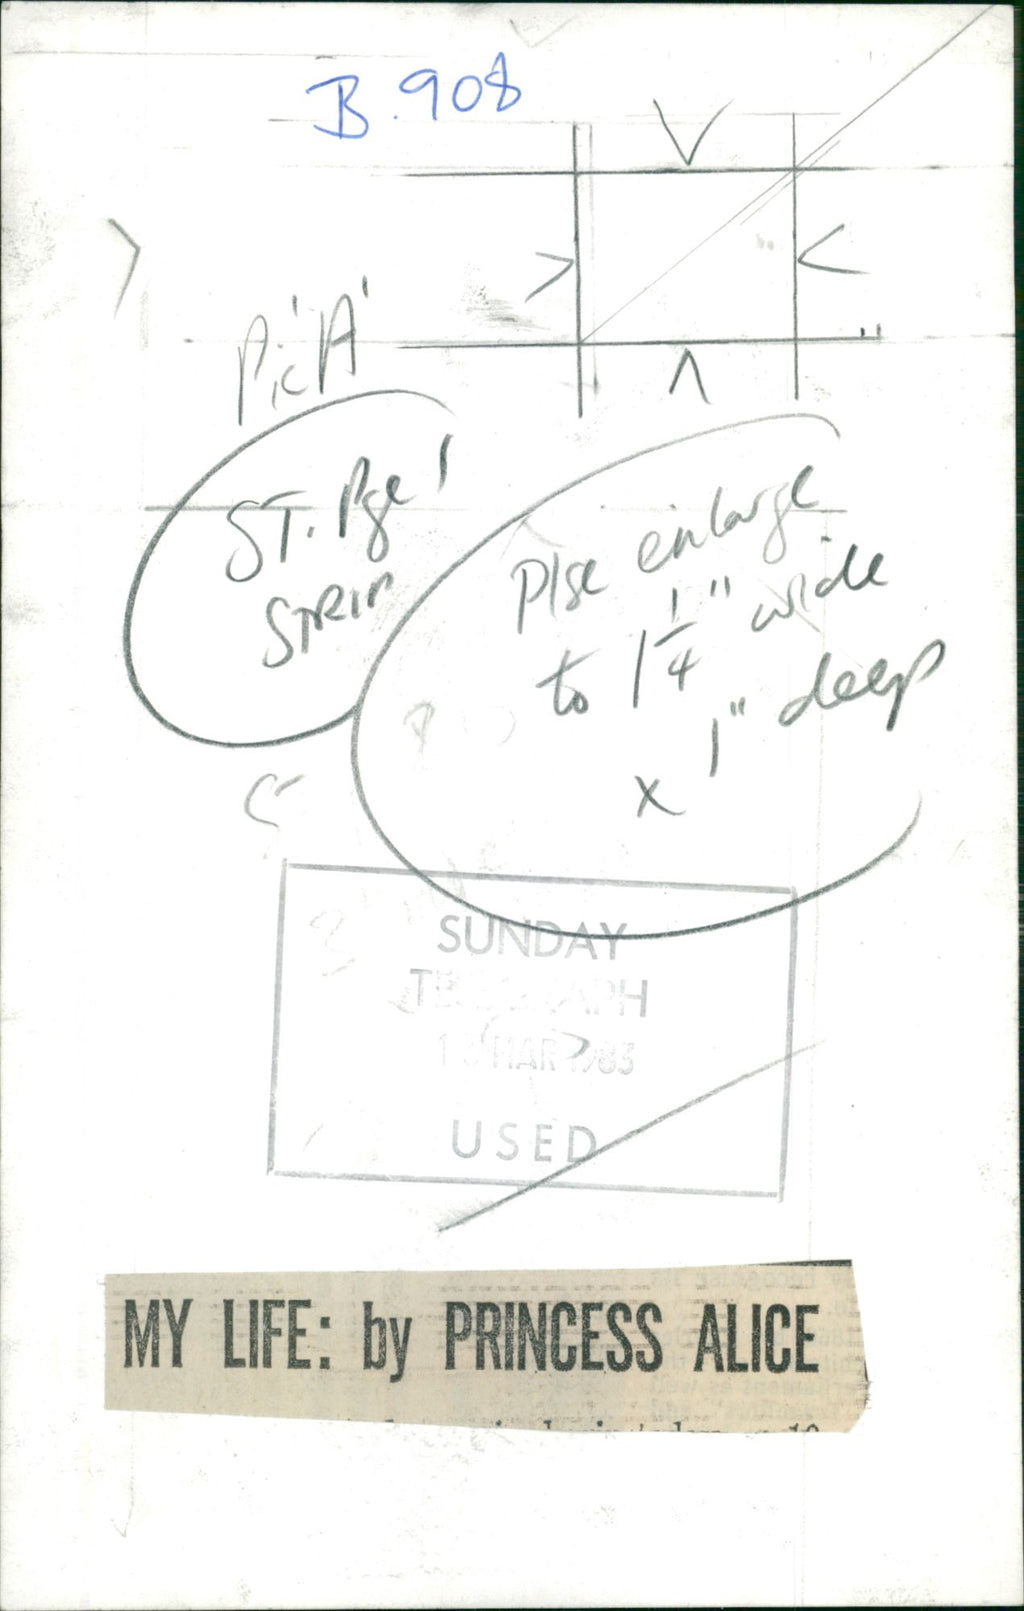 B.908
Pic 'A'
ST. Pge 1
STRIP
Plse enlarge
to 1 1/4" wide
x 1" deep
SUNDAY
TELEGRAPH
MAR 1983
USED
MY LIFE: by PRINCESS ALICE